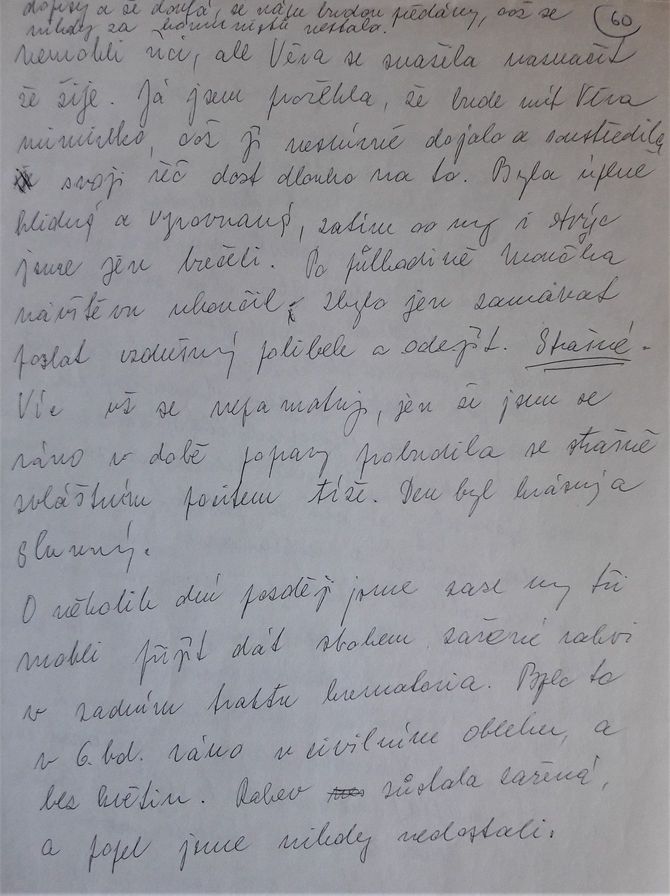 dopisy a že doufá, že nám budou předány, což se
nikdy za komunistů nestalo.
60
nemohli říci, ale Věra se snažila naznačit
že žije. Já jsem prořekla, že bude mít Věra
miminko, což ji nesmírně dojalo a soustředila
svoji řeč dost dlouho na to. Byla úplně
klidná a vyrovnaná, zatím co my i strýc
jsme jen brečeli. Po půlhodině
návštěvu ukončil, zbylo jen zamávat
poslat vzdušný polibek a odejít. Strašné.
Víc už se nepamatuji, jen že jsem se
ráno v době popravy probudila se strašně
zvláštním pocitem tíže. Den byl krásný a
slunný.
O několik dní později jsme zase my tři
mohli přijít dát sbohem zavřené rakvi
v zadním traktu krematoria. Bylo to
v 6. hod. ráno v civilním obleku, a
bez květin. Rakev zůstala zavřená,
a popel jsme nikdy nedostali.